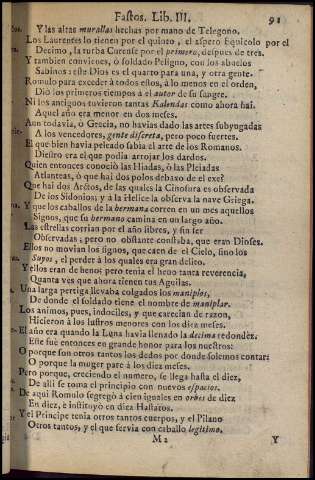 Fastos. Lib. III. 91
Y las altas murallas hechas por mano de Telegono.
Los Laurentes lo tienen por el quinto, el aspero Equicolo por el
Decimo, la turba Curense por el primero, despues de tres.
Y tambien convienes, ò soldado Peligno, con los abuelos
Sabinos: este Dios es el quarto para una, y otra gente.
Romulo para exceder à todos estos, à lo menos en el orden,
Diò los primeros tiempos à el autor de su sangre.
Ni los antiguos tuvieron tantas Kalendas como ahora hai.
Aquel año era menor en dos meses.
Aun todavia, ò Grecia, no havias dado las artes subyugadas
A los vencedores, gente discreta, pero poco fuertes.
El que bien havia peleado sabia el arte de los Romanos.
Diestro era el que podia arrojar los dardos.
Quien entonces conociò las Hiadas, ò las Pleiadas
Atlanteas, ò que hai dos polos debaxo de el exe?
Que hai dos Arctos, de las quales la Cinosura es observada
De los Sidonios; y à la Helice la observa la nave Griega.
Y que los caballos de la hermana corren en un mes aquellos
Signos, que su hermano camina en un largo año.
Las estrellas corrian por el año libres, y sin ser
Observadas; pero no obstante constaba, que eran Dioses.
Ellos no movian los signos, que caen de el Cielo, sino los
Suyos, el perder à los quales era gran delito.
Y ellos eran de heno; pero tenia el heno tanta reverencia,
Quanta ves que ahora tienen tus Aguilas.
Una larga pertiga llevaba colgados los maniplos,
De donde el soldado tiene el nombre de maniplar.
Los animos, pues, indociles, y que carecian de razon,
Hicieron à los lustros menores con los diez meses.
El año era quando la Luna havia llenado la decima redondèz.
Este fuè entonces en grande honor para los nuestros:
O porque son otros tantos los dedos por donde solemos contar:
O porque la muger pare à los diez meses.
Pero porque, creciendo el numero, se llega hasta el diez,
De alli se toma el principio con nuevos espacios.
De aqui Romulo segregò à cien iguales en orbes de diez
En diez, è instituyò en diez Hastatos.
Y el Principe tenia otros tantos cuerpos, y el Pilano
Otros tantos, y el que servia con caballo legitimo.
M 2 Y